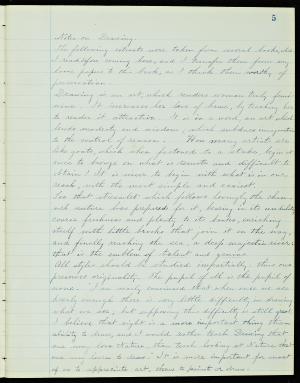 5
Notes on Drawing.
The following extracts were taken from several books, which
I read before coming here, and I transfer them from my
loose papers to this book, as I think them worthy of
preservation.
Drawing is an art, which renders woman truly femi-
nine. It increases her love of home, by teaching her
to render it attractive. It is in a word, an art which
lends modesty and wisdom, which subdues imagination
to the control of reason. How many artists are
like goats, which when fastened to a stake, begin at
once to browse on what is remote and difficult to
obtain! It is wiser to begin with what is in our
reach, with the most simple and easiest.
See that streamlet which follows lovingly the chan-
nel nature has prepared for it, leaving in its
course freshness and plenty to its banks, enriching
itself with little brooks that join it on the way,
and finally reaching the sea, a deep majestic river;
that is the emblem of talent and genius.
All styles should be studied impartially, thus one
preserves originality. The pupil of all is the pupil of
none. "I am nearly convinced that when once we see
keenly enough there is very little difficulty in drawing
what we see, but supposing this difficulty is still great
I believe that sight is a more important thing than
ability to draw, and I would rather teach Drawing that
one may love Nature, than teach looking at Nature that
one may learn to draw." It is more important for most
of us to appreciate art, than to paint or draw.